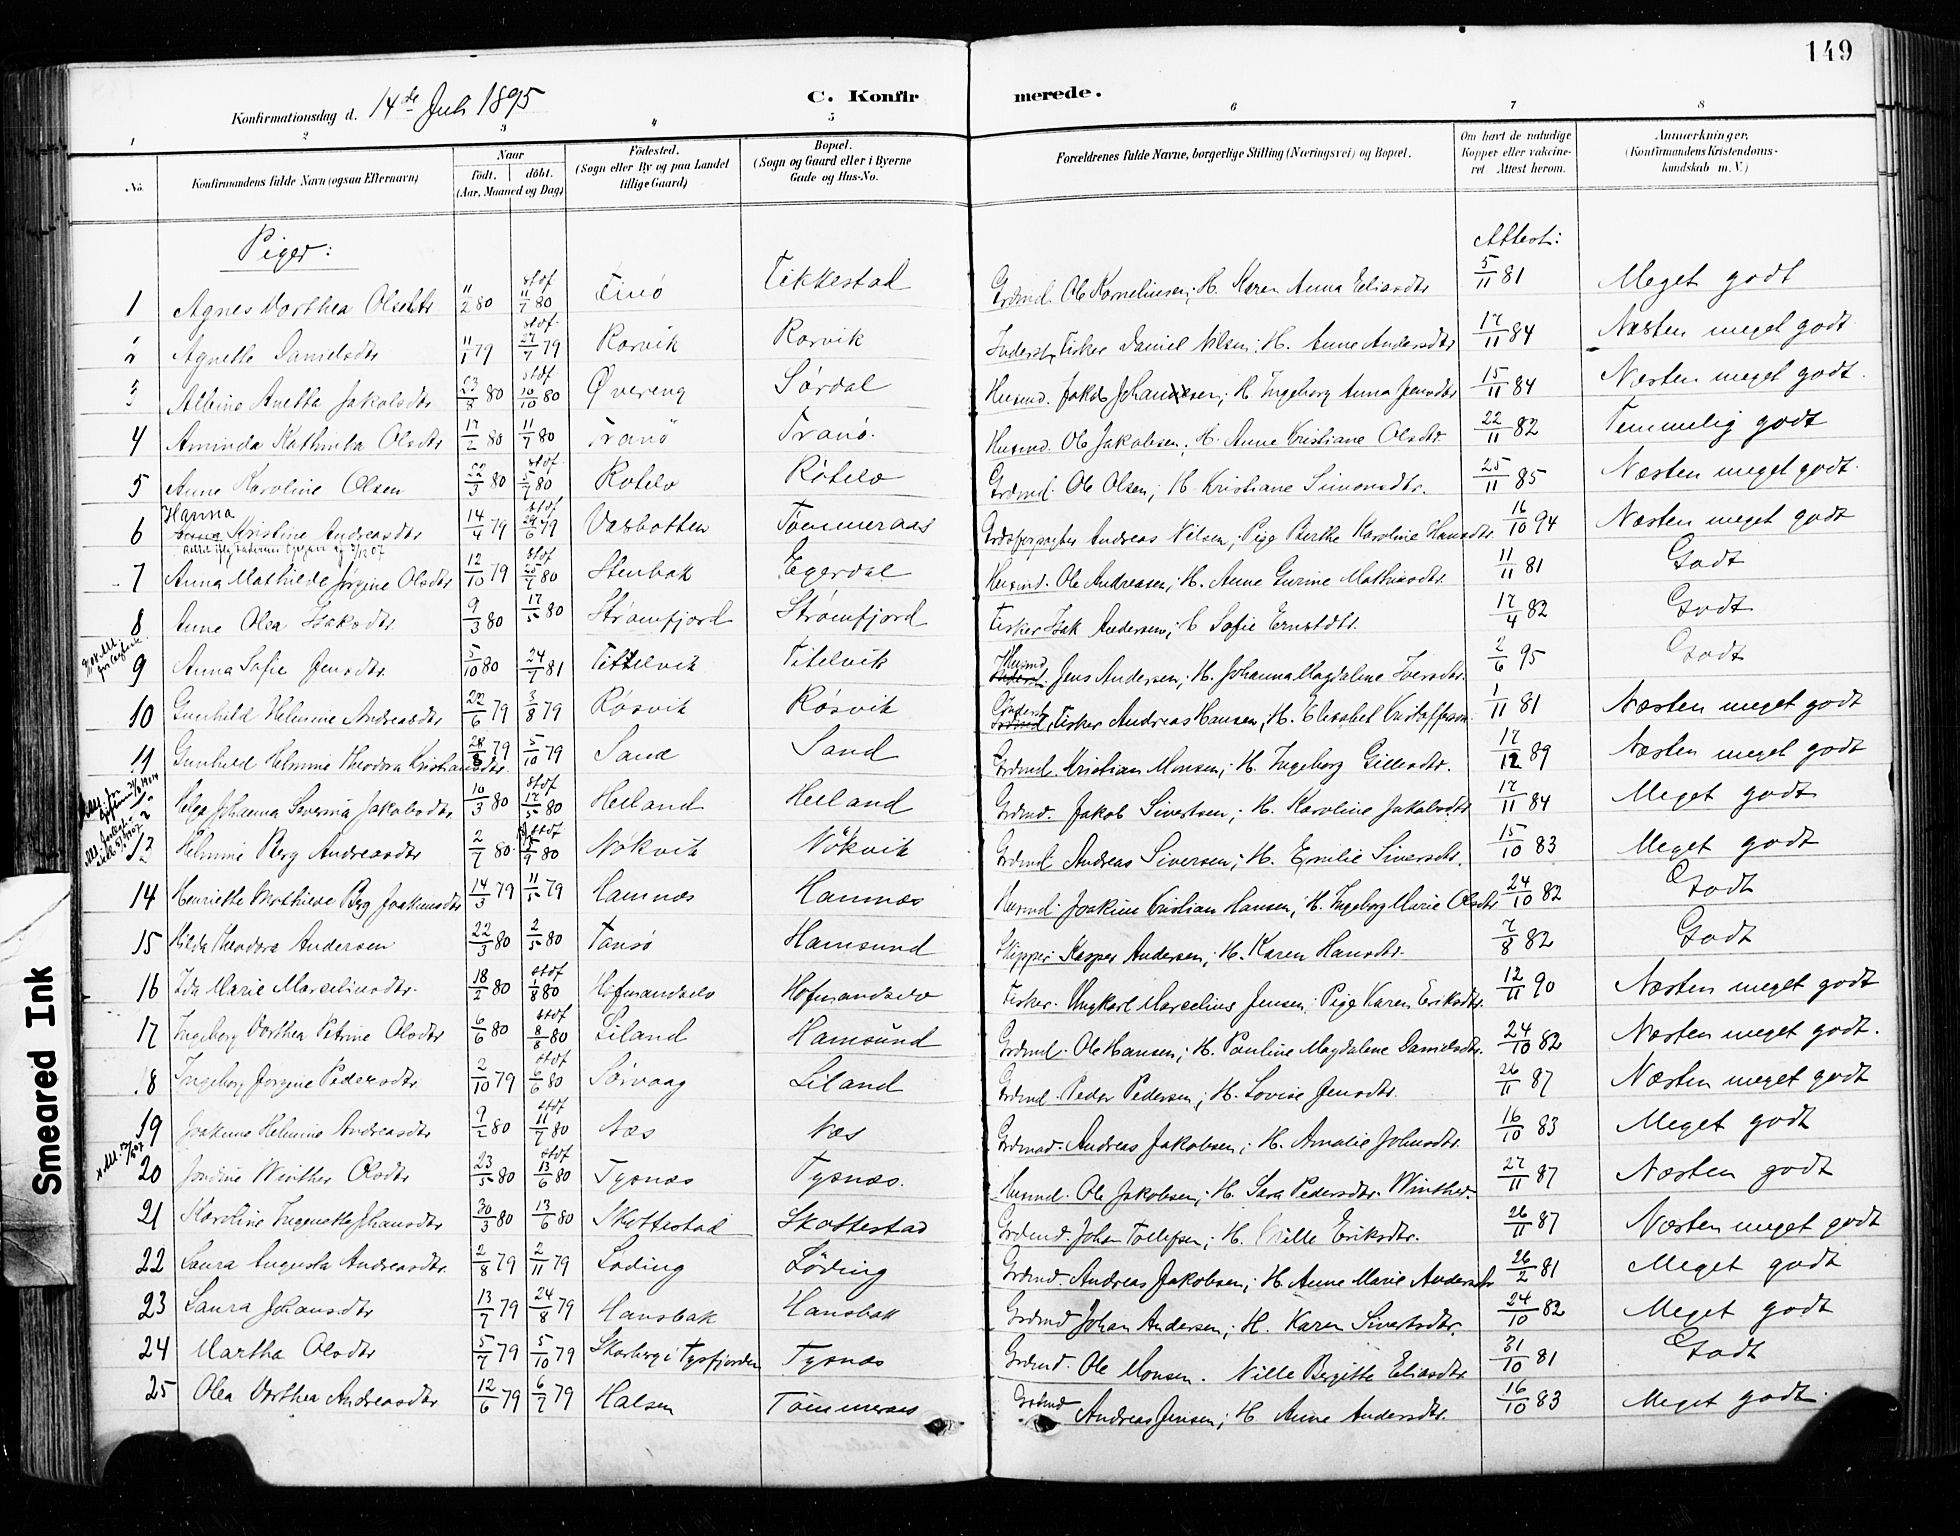 149
Konfirmationsdag d. 14de Juli 1895
C. Konfirmerede.
1 2 3 4 5 6 7 8
No.
Konfirmandens fulde Navn (ogsaa Efternavn)
Naar
födt. döbt.
(Aar, Maaned og Dag)
Födested.
(Sogn eller By og paa Landet
tillige Gaard)
Bopæl.
(Sogn og Gaard eller i Byerne
Gade og Hus-No.
Forældrenes fulde Navne, borgerlige Stilling (Næringsvei) og Bopæl.
Om havt de naturlige
Kopper eller vakcine-
ret Attest herom.
Anmærkninger.
(Konfirmandens Kristendoms-
kundskab m. V.)
Piger: Attest:
1 Agnes Dorthea Olsdtr 11/2 80 stdf 11/7 80 Finö Tikkestad Grdmd. Ole Kornelius[]; H. Karen Anna Eliasdtr 5/11 81 Meget godt
2 Agnethe Danielsdtr 11/1 79 stdf. 27/7 79 Korvik Korvik Inderst, Fisker Daniel Nilsen; H. Anne Andersdtr 17/11 84 Næsten meget godt
3 Albine Anetta Jakobsdtr 23/8 80 stdf 10/10 80 Øvereng Sördal Husmd. Jakob Johansen; H. Ingeborg Anna Jensdtr 15/11 84 Næsten meget godt.
4 Aminda Kathinka Olsdtr 17/2 80 11/7 80 Tranö Tranö. Husmd. Ole Jakobsen; H. Anne Kristiane Olsdtr 22/11 82 Temmelig godt
5 Anne Karoline Olsen 22/3 80 stdf. 5/7 80 Rotelv Rötelv Grdmd. Ole Olsen; H. Kristiane Simonsdtr. 25/11 85 Næsten meget godt.
6 Hanna Kristine Andreasdtr 14/4 79 stdf 29/6 79 Vasbotten Tömmeraas Grdsforpagter Andreas Nilsen, Pige Berthe Karoline Hansdtr. 16/10 94 Næsten meget godt
7 Anna Mathilde Jørgine Olsdtr 12/10 79 stdf 25/7 80 Stenbak Egerdal Husmd. Ole Andreasen; H. Anne Gurine Mathiasdtr. 11/11 81 Godt
8 Anne Olea Isaksdtr 9/3 80 17/5 80 Strömfjord Strömfjord Fisker Isak Andersen; H. Sofie Ernstdtr. 17/4 82 Godt
9 Anna Sofie Jensdtr. 5/10 80 24/7 81 Tittelvik Titelvik Husmd. Jens Andersen; H. Johanna Magdalene Iversdtr. 2/6 95 Godt
10 Gunhild Helmine Andreasdtr 22/6 79 3/8 79 Rösvik Rösvik Inderst, Fisker Andreas Hansen; H. Elisabet Kristoffersen 1/11 81 Næsten meget godt
11 Gunhild Helmine Theodora Kristiansdtr. 28/8 79 5/10 79 Sand Sand Grdmd. Kristian Monsen; H. Ingeborg Gillesdtr. 17/12 89 Næsten meget godt
12 Helga Johanna Severina Jakobsdtr 10/3 80 stdf 17/5 80 Helland Helland Grdmd. Jakob Sivertsen; H. Karoline Jakobsdtr 17/11 84 Meget godt
13 Helmine Berg Andreasdtr 2/7 80 stdf 5/9 80 Nökvik Nökvik Grdmd. Andreas Siversen; H. Emilie Siversdtr. 15/10 83 Meget godt
14 Henriette Mathilde Berg Joakimsdtr 14/3 79 11/5 79 Hamnæs Hamnæs Husmd. Joakim Kristian Hansen; H. Ingeborg Marie Olsdtr 24/10 82 Godt
15 Hilda Theodora Andersen 22/3 80 2/5 80 Tansö Hamsund Skipper Kasper Andersen; H. Karen Hansdtr. 7/8 82 Godt
16 Ida Marie Marcelinsdtr. 18/2 80 stdf 1/8 80 Hofmandselv Hofmandselv Fisker, Ungkarl Marcelius Jensen, Pige Karen Eriksdtr. 12/11 90 Næsten meget godt
17 Ingeborg Dorthea Petrine Olsdtr 6/6 80 stdf 8/8 80 Liland Hamsund Grdmd. Ole Hansen; H. Pauline Magdalene Danielsdtr. 24/10 82 Næsten meget godt.
18 Ingeborg Jorgine Pedersdtr 2/10 79 stdf 6/6 80 Sörvaag Liland Grdmd. Peder Pedersen; H. Lovise Jensdtr. 26/11 87 Næsten meget godt
19 Joakime Helmine Andreasdtr 9/2 80 stdf 11/7 80 Næs Næs Grdmd. Andreas Jakobsen; H. Amalie Johnsdtr. 16/10 83 Meget godt
20 Jordine Winther Olsdtr 23/5 80 stdf 13/6 80 Tysnæs Tysnæs. Husmd. Ole Jakobsen; H. Sara Pedersdtr. Winther 27/11 87 Næsten godt
21 Karoline Ingenette Johansdtr 30/3 80 13/6 80 Skottestad Skottestad Grdmd. Johan Tollefsen; H. Nille Eriksdtr. 26/11 87 Næsten meget godt
22 Laura Augusta Andreasdtr. 2/8 79 2/11 79 Löding Löding Grdmd. Andreas Jakobsen; H. Anne Marie Andersdtr 26/2 81 Meget godt
23 Laura Johansdtr 13/7 79 24/8 79 Hansbak Hansbak Grdmd Johan Andersen; H. Karen Sivertsdtr. 24/10 82 Meget godt
24 Martha Olsdtr 5/7 79 5/10 79 Skarberg i Tysfjorden Tysnæs Grdmd. Ole Monsen. Nille Bergitte Eliasdtr 31/10 81 Godt
25 Olea Dorthea Andreasdtr 12/6 79 6/7 79 Halsen Tömmeraas Grdmd Andreas Jensen; H. Anne Andersdtr. 16/10 83 Meget godt.
Smeared Ink